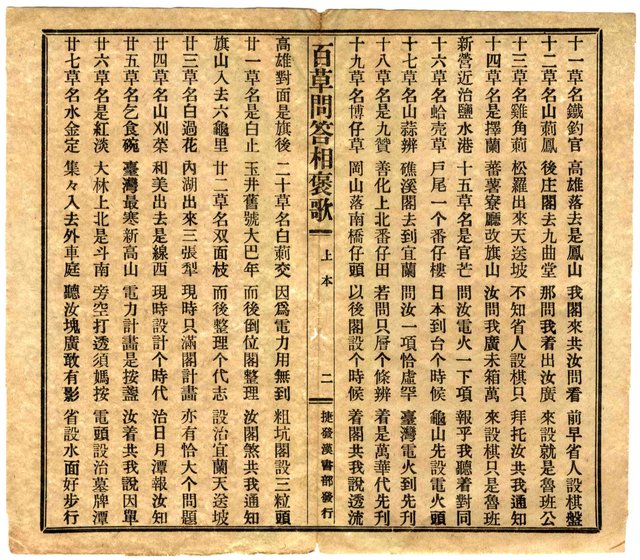 十一草名鐵釣官　高雄落去是鳳山　我閣來共汝問看　前早省人設棋盤
十二草名山莿鳳　後庄閣去九曲堂　那問我着出汝廣　來設就是魯班公
十三草名雞角莿　松羅出來天送坡　不知省人設棋只　拜托汝共我通知
十四草名是擇蘭　蕃薯寮廳改旗山　汝問我廣未箱萬　來設棋只是魯班
新營近治鹽水港　十五草名是官芒　問汝電火一下項　報乎我聽着對同
十六草名蛤壳草　戶尾一个番仔樓　日本到台个時候　龜山先設電火頭
十七草名山蒜辨　礁溪閣去到宜蘭　問汝一項恰虛罕　臺灣電火到先刋
十八草名是九贊　善化上北番仔田　若問只層个條辨　着是萬華代先刋
十九草名博仔草　岡山落南橋仔頭　以後閣設个時候　着閣共我說透流
百草問答相褒歌　上本　二　捷發漢書部發行
高雄對面是旗後　二十草名白莿交　因爲電力用無到　粗坑閣設三粒頭
廿一草名是白止　玉井舊號大巴年　而後倒位閣整理　汝閣煞共我通知
旗山入去六龜里　廿二草名双面枝　而後整理个代志　設治宜蘭天送坡
廿三草名白過花　內湖出來三張犁　現時只滿閣計畫　亦有恰大个問題
廿四草名山刈菜　和美出去是線西　現時設計个時代　治日月潭報汝知
廿五草名乞食碗　臺灣最寒新高山　電力計畫是按盞　汝着共我說因單
廿六草名是紅淡　大林上北是斗南　旁空打透須媽按　電頭設治墓牌潭
廿七草名水金定　集々入去外車庭　聽汝塊廣敢有影　省設水面好步行